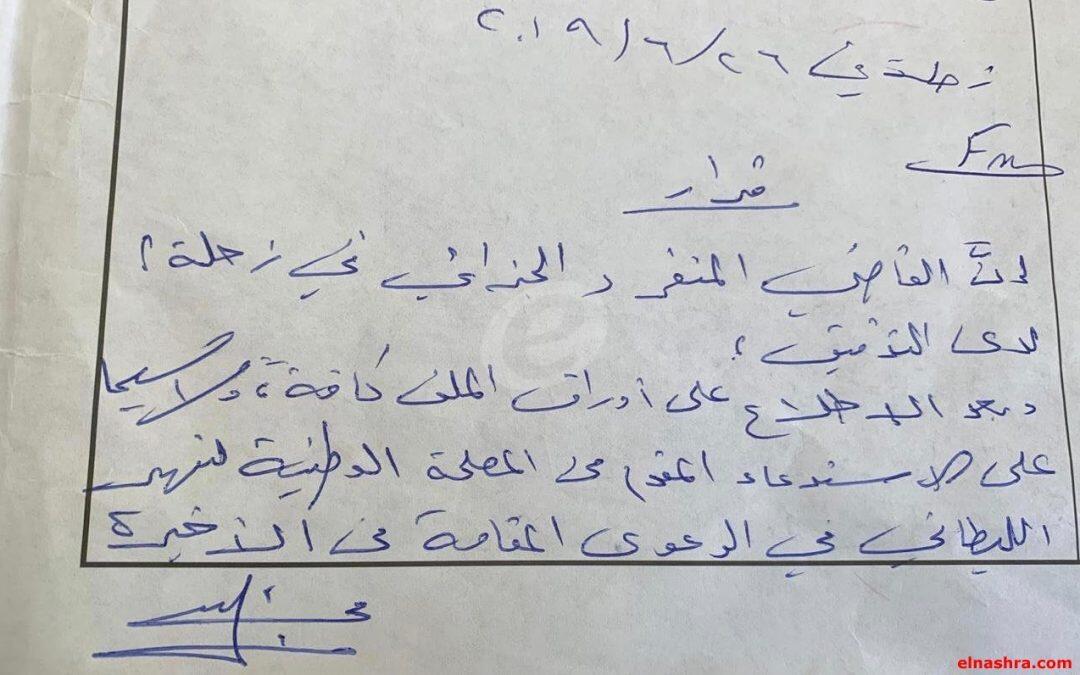 زحلة في ٢٦/٦/٢٠١٩
قرار
إنّ القاضي المنفرد الجزائي في زحلة؛
لدى التدقيق؛
وبعد الاطلاع على أوراق الملف كافة، ولا سيما
على الاستدعاء المقدم من المصلحة الوطنية لنهر
الليطاني في الدعوى المقامة من الأخيرة
elnashra.com